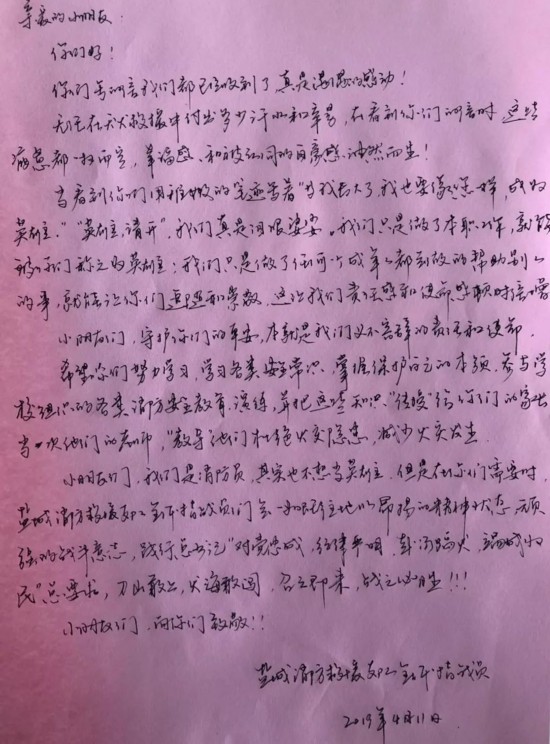 亲爱的小朋友：
你们好！
你们写的信我们都已经收到了，真是满满的感动！
无论在灭火救援中付出多少汗水和辛劳，在看到你们的信时，这些
疲惫都一扫而空，幸福感和被认同的自豪感油然而生！
当看到你们用稚嫩的笔迹写着“当我长大了，我也要像您一样，成为
英雄”“英雄，请开”，我们真是泪眼婆娑。我们只是做了本职工作，就能
被你们称之为英雄；我们只是做了任何一个成年人都到做的帮助别人
的事，就能让你们和崇敬，这让我们责任感和使命感顿时倍增
小朋友们，守护你们的平安，本就是我们义不容辞的责任和使命
希望你们努力学习，学习各类安全常识，掌握保护自己的本领，参与学
校组织的各类消防安全教育、演练，并把这些知识“传授”给你们的家长
当一次他们的老师，“教导”他们杜绝火灾隐患，减少火灾发生
小朋友们，我们是消防员，其实也不想当英雄，但是在你们需要时，
盐城消防救援支队全体指战员们会一如既往地以昂扬的精神状态、顽
强的战斗意志，践行总书记“对党忠诚，纪律严明，赴汤蹈火，竭诚为
民”总要求，刀山敢上，火海敢闯，召之即来，战之必胜！！！
小朋友们，向你们致敬！！
盐城消防救援支队全体指战员
2019年4月11日